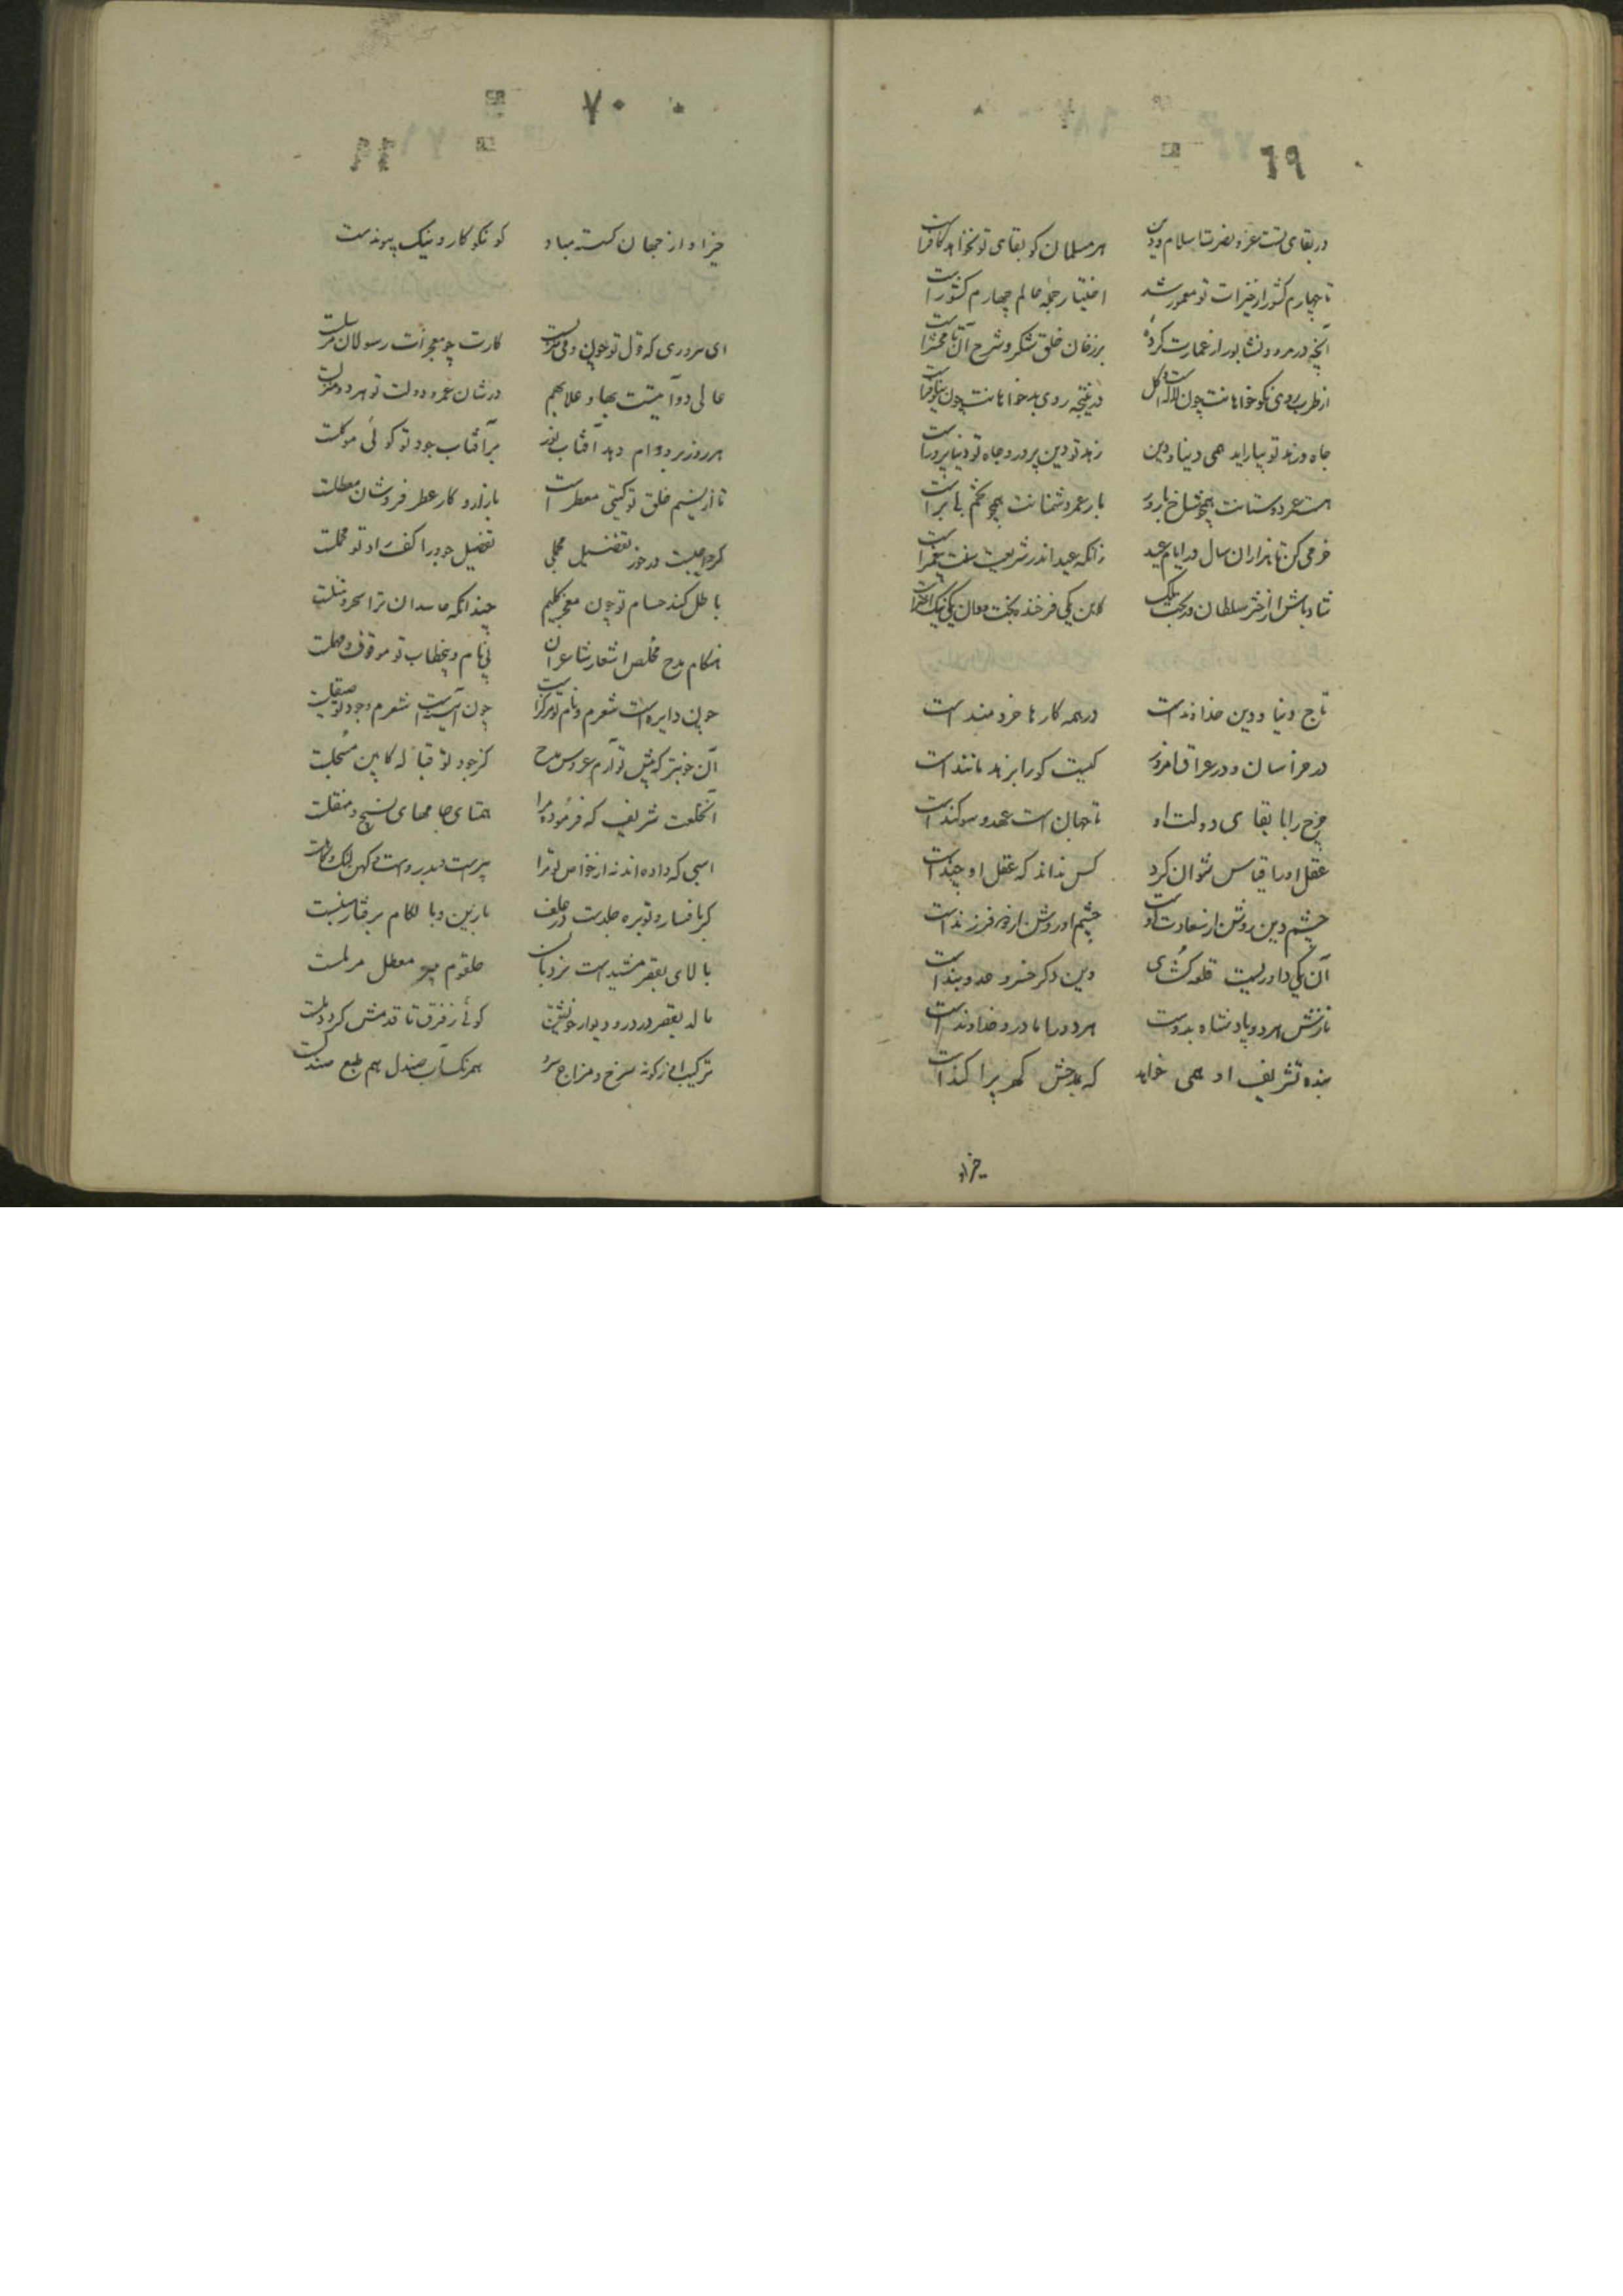 ٦٩
در بقای تست عز و نصرت اسلام و دین هر مسلمان کو بقای تو نخواهد کافر است
تا چهارم کشور از خیرات تو معمور شد اختیار جمله عالم چهارم کشور است
آنچه در مرو و نشابور از عمارت کرده بر زفان خلق شکر و شرح آن تا محشر است
از طرب روی نکو خواهانت چون لاله است و گل روی بدخواهانت چون
جاه و زهد تو بیاراید همی دنیا و دین زهد تو دین پرور و جاه تو دنیا پرور است
هست عمر دوستانت همچو شاخ بارور بار عمر دشمنانت همچو تخم بی بر است
خرمی کن تا هزاران سال در ایام عید زانکه عید اندر شریعت سنت پیغمبر است
شاد باش از اختر سلطان و بخت ملک کاین یکی فرخنده بخت و آن یکی نیک اختر است
تاج دنیا و دین خداوند است در همه کارها خردمند است
در خراسان و در عراق امروز کیست کورا بزهد مانند است
چرخ را با بقای دولت او تا جهان است عهد و سوکند است
عقل او را قیاس نتوان کرد کس نداند که عقل او چند است
چشم دین روشن از سعادت اوست چشم او روشن از دو فرزند است
آن یکی داوریست قلعه کشای وین دکر خسرو عدو بند است
نازش هر دو پادشاه بدوست هر دو را مادر و خداوند است
بنده تشریف او همی خواهد که بمدحش کهر پراکند است
خیر او
٧٠
خیر او از جهان کسسته مباد کو نکو کار و نیک پیوندست
ای سروری که قول تو چون وحی منزلست کارت چو معجزات رسولان مرسلست
عالی دو آیتست بها و علا بهم در شان عمر و دولت تو هر دو منزلست
هر روز بر دوام دهد آفتاب نور بر آفتاب جود تو کوئی موکلست
تا از نسیم خلق تو کیتی معطر است بازار و کار عطر فروشان معطلست
کر واجبست در خور تفضیل مجملی تفضیل جود را کف راد تو مجملست
باطل کند حسام تو چون معجز کلیم چندانکه حاسدان ترا سحر و تنبلست
هنکام مدح مخلص اشعار شاعران بی نام و بی خطاب تو موقوف و مهملست
چون دایره است شعرم و نام تو مرکز است چون آینه است شعرم و جود تو صیقلست
آن خوبتر که پیش تو آرم عروس مدح کز جود تو قباله کابین مسجلست
آن خلعت شریف که فرموده مرا همتای جامهای نسیج و مثقلست
اسبی که داده اند نه از خواص تو ترا پیرست و
کر با فسار و توبره جلدست در علف با زین و با لکام برفتار تنبلست
بالای بقصر مشیدست نردبان حلقوم معطل
مالد بقصر در در و دیوار خویشتن کوئی ز فرق تا قدمش کر و دملست
ترکیب او ز کونه سرخ و مزاج سرد همرنک آب صندل و هم طبع صندلست